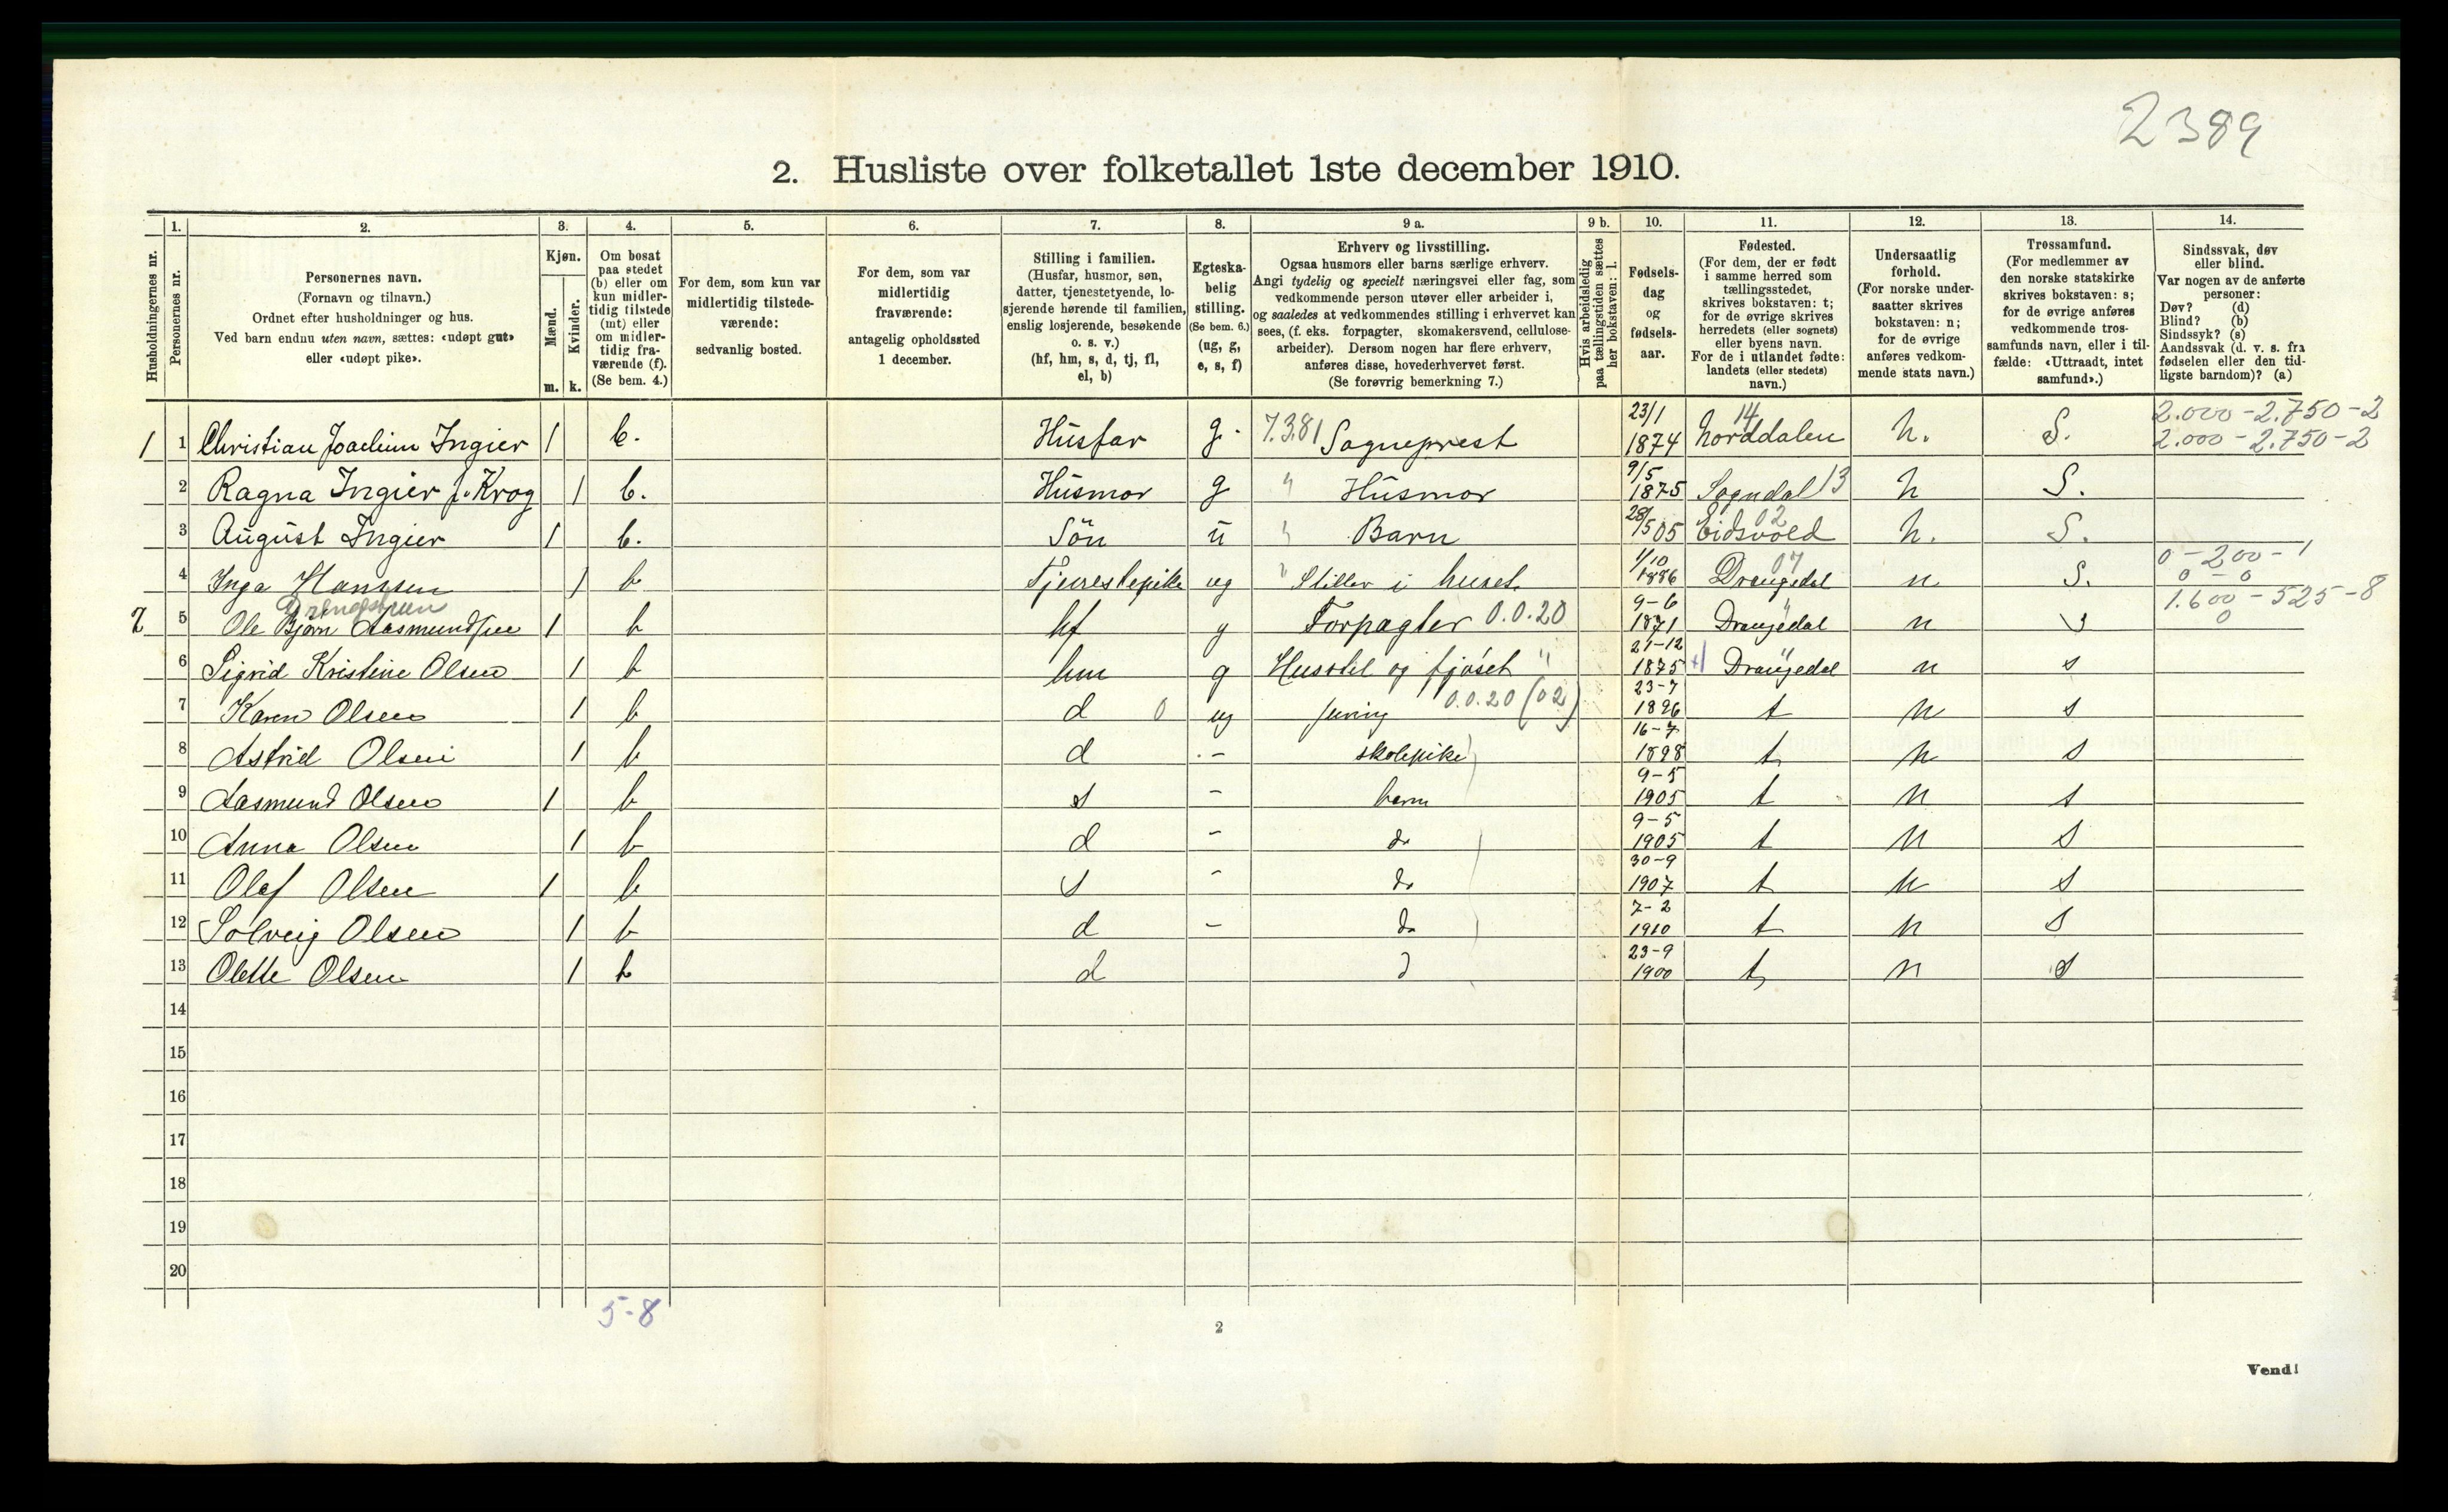 2389
2. Husliste over folketallet 1ste december 1910.
Husholdningernes nr.
1.
Personernes nr.
2.
Personernes navn.
(Fornavn og tilnavn.)
Ordnet efter husholdninger og hus.
Ved barn endnu uten navn, sættes: «udøpt gut»
eller «udøpt pike».
3.
Kjøn.
Mænd.
m.
Kvinder.
k.
4.
Om bosat
paa stedet
(b) eller om
kun midler-
tidig tilstede
(mt) eller
om midler-
tidig fra-
værende (f).
(Se bem. 4.)
5.
For dem, som kun var
midlertidig tilstede-
værende:
sedvanlig bosted.
6.
For dem, som var
midlertidig
fraværende:
antagelig opholdssted
1 december.
7.
Stilling i familien.
(Husfar, husmor, søn,
datter, tjenestetyende, lo-
sjerende hørende til familien,
enslig losjerende, besøkende
o. s. v.)
(hf, hm, s, d, tj, fl,
el, b)
8.
Egteska-
belig
stilling.
(Se bem. 6.)
(ug, g,
e, s, f)
9 a.
Erhverv og livsstilling.
Ogsaa husmors eller barns særlige erhverv.
Angi tydelig og specielt næringsvei eller fag, som
vedkommende person utøver eller arbeider i,
og saaledes at vedkommendes stilling i erhvervet kan
sees, (f. eks. forpagter, skomakersvend, cellulose-
arbeider). Dersom nogen har flere erhverv,
anføres disse, hovederhvervet først.
(Se forøvrig bemerkning 7.)
9 b.
Hvis arbeidsledig
paa tællingstiden sættes
her bokstaven: l.
10.
Fødsels-
dag
og
fødsels-
aar.
11.
Fødested.
(For dem, der er født
i samme herred som
tællingsstedet,
skrives bokstaven: t;
for de øvrige skrives
herredets (eller sognets)
eller byens navn.
For de i utlandet fødte:
landets (eller stedets)
navn.)
12.
Undersaatlig
forhold.
(For norske under-
saatter skrives
bokstaven: n;
for de øvrige
anføres vedkom-
mende stats navn.)
13.
Trossamfund.
(For medlemmer av
den norske statskirke
skrives bokstaven: s;
for de øvrige anføres
vedkommende tros-
samfunds navn, eller i til-
fælde: «Uttraadt, intet
samfund».)
14.
Sindssvak, døv
eller blind.
Var nogen av de anførte
personer:
Døv? (d)
Blind? (b)
Sindssyk? (s)
Aandssvak (d. v. s. fra
fødselen eller den tid-
ligste barndom)? (a)
1 1 Christian Joachim Ingier 1 b. Husfar g. 7.3.81 Sogneprest 23/1 1874 14 Norddalen n. S. 2.000-2.750-2 2.000-2.750-2
2 Ragna Ingier f. Krog 1 b. Husmor g " Husmor 9/5 1875 Sogndal 13 n S.
3 August Ingier 1 b. Sön u " Barn 28/5 05 Eidsvold 02 n. S.
4 Inga Hanssen 1 b Tjenestepike ug " Steller i huset. 1/10 1886 Drangedal 07 n S. 0-200-1 0-0
2 5 Ole Bjørn Aasmundsen 1 b hf g Forpagter 0.0.20 9-6 1871 Drangedal " n s 1.600-525-8 0
6 Sigrid Kristine Olsen 1 b hm g Husstel og fjøset " 21-12 1875 Drangedal " n s
7 Karen Olsen 1 b d 0 ug 0.0.20 (02) 23-7 1896 t n s
8 Astrid Olsen 1 b d - skolepike 16-7 1898 t n s
9 Aasmund Olsen 1 b s - barn 9-5 1905 t n s
10 Anna Olsen 1 b d - do 9-5 1905 t n s
11 Olaf Olsen 1 b s - do 30-9 1907 t n s
12 Solveig Olsen 1 b d - do 7-2 1910 t n s
13 Olette Olsen 1 b d d 23-9 1900 t n s
14
15
16
17
18
19
20
5-8
2
Vend!